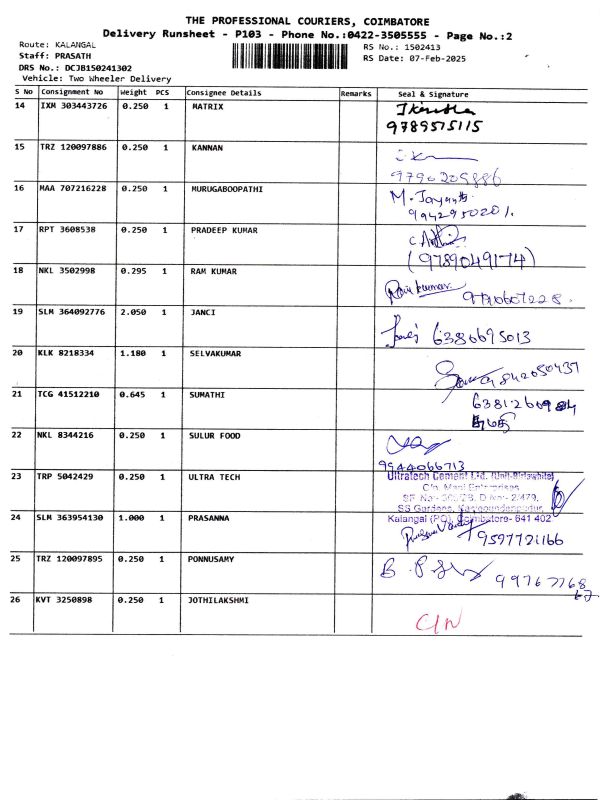 THE PROFESSIONAL COURIERS, COIMBATORE
Delivery Runsheet - P103 - Phone No.:0422-3505555 - Page No.:2
Route: KALANGAL
RS No.: 1502413
Staff: PRASATH
RS Date: 07-Feb-2025
DRS No.: DCJB150241302
Vehicle: Two Wheeler Delivery
S No Consignment No Weight PCS Consignee Details Remarks Seal & Signature
14 IXM 303443726 0.250 1 MATRIX
9789575115
15 TRZ 120097886 0.250 1 KANNAN
9790209886
16 MAA 707216228 0.250 1 MURUGABOOPATHI M. Jayanthi
9942950201.
17 RPT 3608538 0.250 1 PRADEEP KUMAR
(9789049174)
18 NKL 3502998 0.295 1 RAM KUMAR Ramkumar
19 SLM 364092776 2.050 1 JANCI 6386695013
20 KLK 8218334 1.180 1 SELVAKUMAR
21 TCG 41512210 0.645 1 SUMATHI
22 NKL 8344216 0.250 1 SULUR FOOD
9944066713
23 TRP 5042429 0.250 1 ULTRA TECH Ultratech Cement Ltd. (Unit-Birlawhite)
C/o. Mani Enterprises
SF No:- D.No:- 2/479,
SS Gardens,
Kalangal (PO), Coimbatore- 641 402
24 SLM 363954130 1.000 1 PRASANNA
9597721166
25 TRZ 120097895 0.250 1 PONNUSAMY B. 99767768
67
26 KVT 3250898 0.250 1 JOTHILAKSHMI
C/N